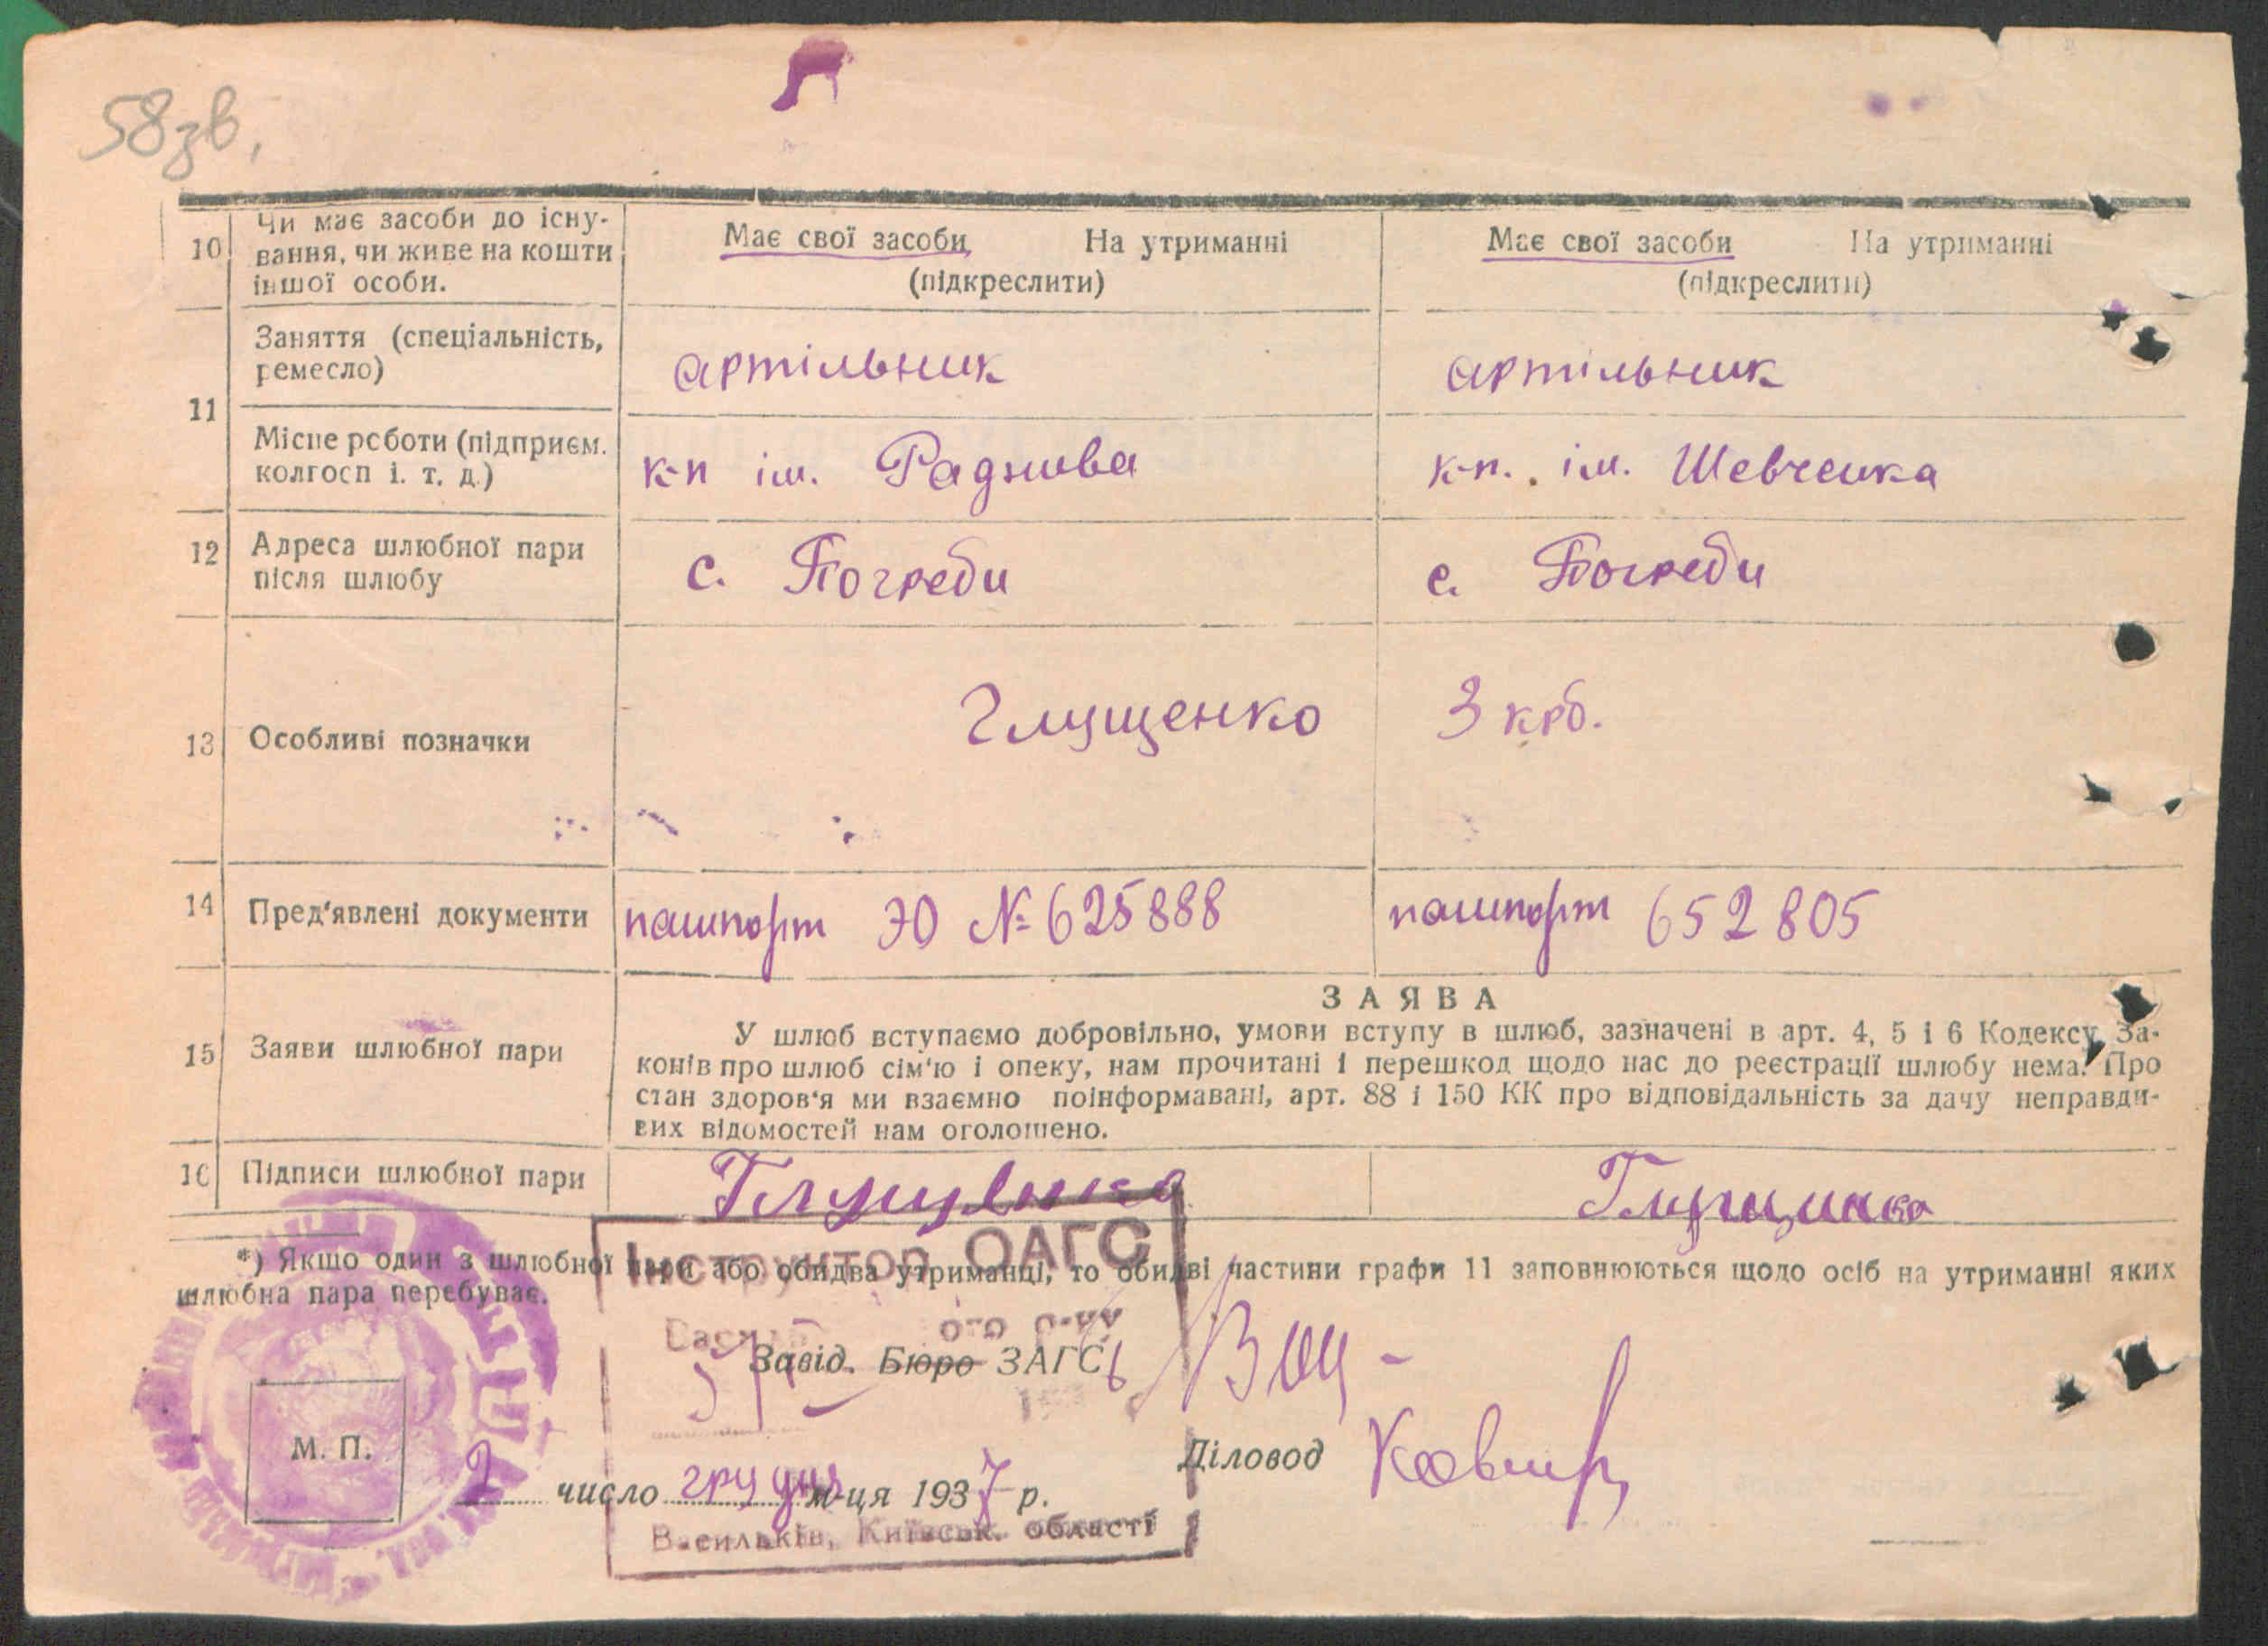 58зв.
10 Чи має засоби до існу- Має свої засоби На утриманні Має свої засоби На утриманні
вання, чи живе на кошти (підкреслити) (підкреслити)
іншої особи.
11 Заняття (спеціальність, артільник артільник
ремесло)
Місце роботи (підприєм. к-п ім. к-п. ім. Шевченка
колгосп і. т. д.)
12 Адреса шлюбної пари с. Погреби с. Погреби
після шлюбу
13 Особливі позначки Глущенко 3 крб.
14 Пред'явлені документи пашпорт ЭЮ № 625888 пашпорт 652805
15 Заяви шлюбної пари
ЗАЯВА
У шлюб вступаємо добровільно, умови вступу в шлюб, зазначені в арт. 4, 5 і 6 Кодексу За-
конів про шлюб сім'ю і опеку, нам прочитані і перешкод щодо нас до реєстрації шлюбу нема. Про
стан здоров'я ми взаємно поінформавані, арт. 88 і 150 КК про відповідальність за дачу неправди-
вих відомостей нам оголошено.
16 Підписи шлюбної пари Глущенко
Інструктор ОАГС
*) Якщо один з шлюбної пари або обидва утриманці, то обидві частини графи 11 заповнюються щодо осіб на утриманні яких
шлюбна пара перебуває.
ого р-ну
Завід. Бюро ЗАГС
М. П.
Діловод
2 число грудня м-ця 1937 р.
Васильків, Київськ. області